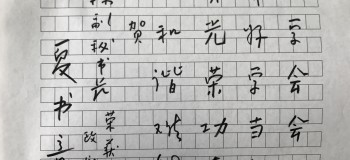 学会会
好学当
光荣功
和谐
贺
副秘书长
荣获
夏书